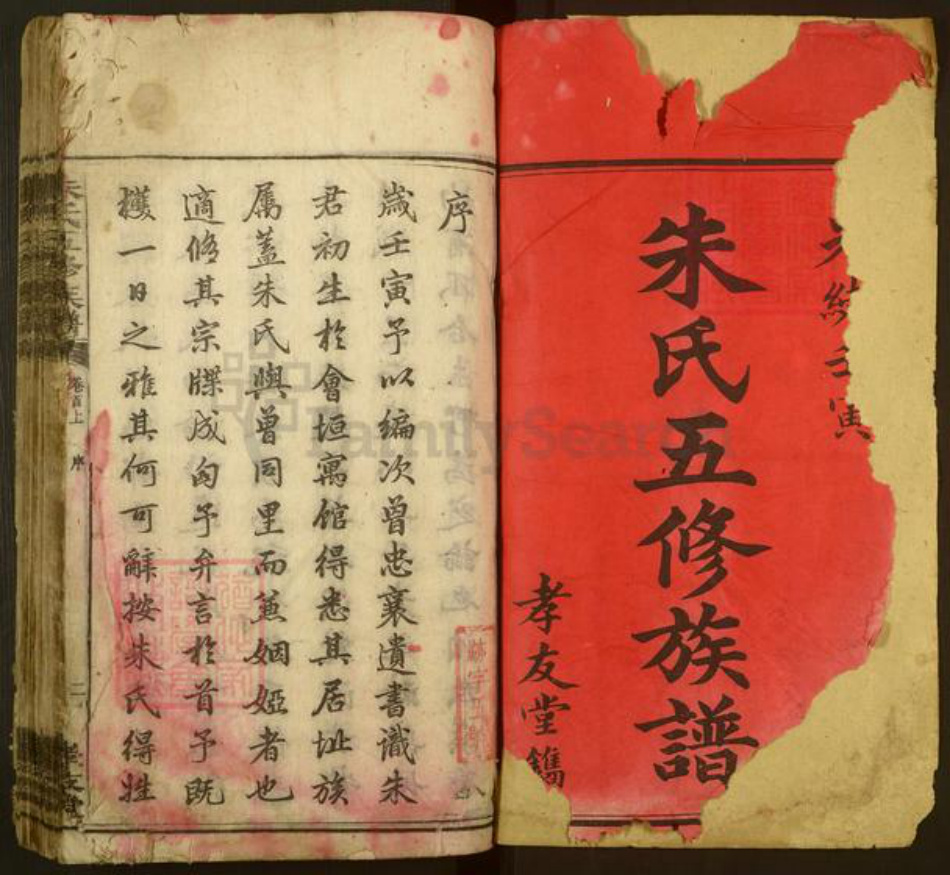 光緒壬寅
朱氏五修族譜
孝友堂鐫
序
歲壬寅予以編次曾忠襄遺書識朱
君初生於會垣寓館得悉其居址族
属蓋朱氏與曾同里而兼姻婭者也
適脩其宗牒成匃予弁言於首予既
擭一日之雅其何可辭按朱氏得姓
朱氏五修族譜
卷首上
序
二
孝友堂
FamilySearch